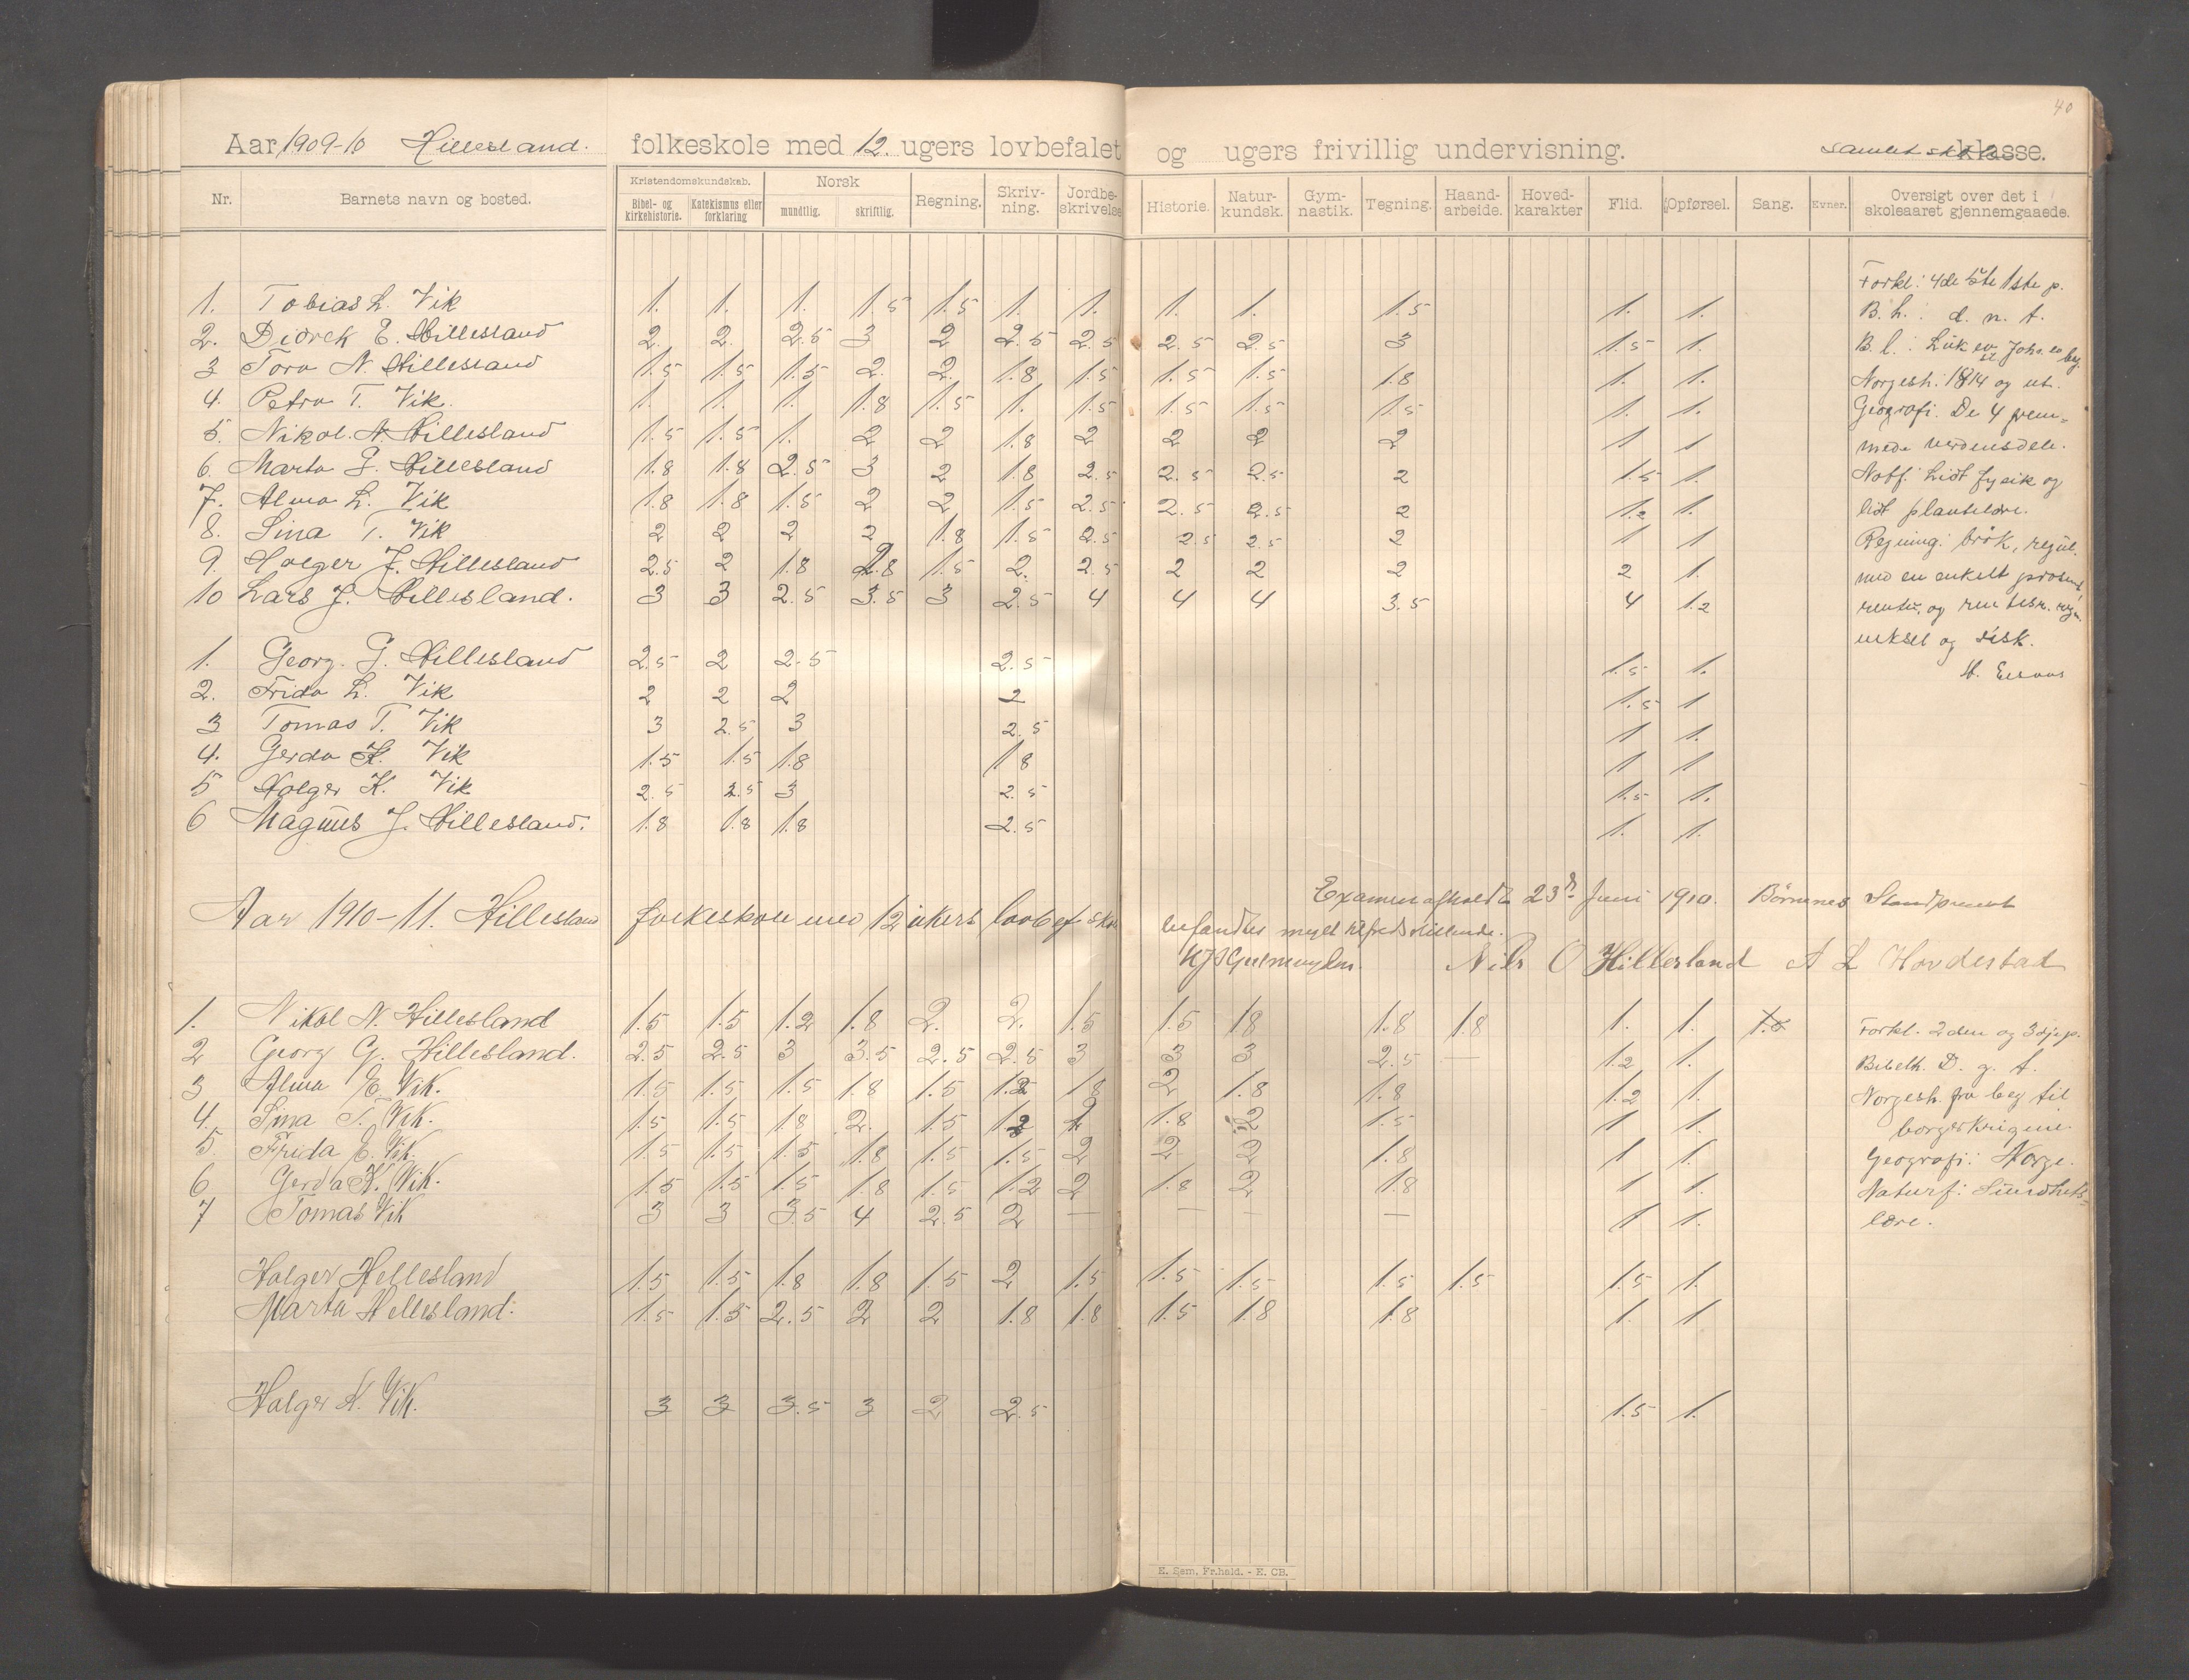 40
Aar 1909-10 Hillesland. folkeskole med 12. ugers lovbefalet og ugers frivillig undervisning. samlet skole klasse.
Nr. Barnets navn og bosted. Kristendomskundskab. Bibel- og kirkehistorie. Katekismus eller forklaring Norsk mundtlig. skriftlig. Regning. Skriv-ning. Jordbe-skrivelse Historie. Natur-kundsk. Gym-nastik. Tegning. Haand-arbeide. Hoved-karakter Flid. Opførsel. Sang. Evner. Oversigt over det i skoleaaret gjennemgaaede.
1. Tobias L. Vik 1. 1. 1. 1.5 1.5 1. 1. 1. 1. 1.5 1. 1.
2. Didrek E. Hillesland 2. 2. 2.5 3 2 2.5 2.5 2.5 2.5 3 1.5 1.
3 Tora N. Hillesland 1.5 1.5 1.5 2. 2. 1.8 1.5 1.5 1.5 1.8 1. 1.
4. Petra T. Vik. 1. 1. 1. 1.8 1.5 1. 1.5 1.5 1.5 1.5 1. 1.
5. Nikol. N. Hillesland 1.5 1.5 1. 2 2 1.8 2 2 2 2 1 1
6. Marta G. Hillesland 1.8 1.8 2.5 3 2 1.8 2.5 2.5 2.5 2 1.5 1.
7. Alma L. Vik 1.8 1.8 1.5 2 2 1.5 2.5 2.5 2.5 2 1.2 1.
8. Sina T. Vik 2 2 2 2 1.8 1.5 2.5 2.5 2.5 2 1 1
9. Holger J. Hillesland 2.5 2 1.8 2.8 1.5 2. 2.5 2 2 2 2 1.
10 Lars J. Hillesland. 3 3 2.5 3.5 3 2.5 4 4 4 3.5 4 1.2
Forkl: 4de 5te 1ste p.
B. h.: d. n. t.
B. l.: Luk ev Joh. ev beg.
Norgesh. 1814 og ut.
Geografi. De 4 frem-
mede verdensdele.
Natf. Lidt fysik og
lidt plantelære.
Regning: brøk, regul.
med en enkelt prosent
rentu. og rentesr. regn.
veksel og disk.
1. Georg. G. Hillesland 2.5 2 2.5 2.5 1.5 1.
2. Frida L. Vik 2 2 2 2 1.5 1
3 Tomas T. Vik 3 2.5 3 2.5 1 1.
4. Gerda K. Vik 1.5 1.5 1.8 1.8 1 1
5 Holger K. Vik 2.5 2.5 3 2.5 1.5 1.
6 Magnus J. Hillesland. 1.8 1.8 1.8 2.5 1. 1.
Examen afholdt 23d Juni 1910. Børnenes Standpunkt
befandtes meget tilfredsstillende.
Nils O Hillesland A L Hovdestad
Aar 1910-11. Hillesland folkeskole med 12 ukers lovbef skole
1. Nikol N. Hillesland 1.5 1.5 1.2 1.8 2. 2. 1.5 1.5 1.8 1.8 1.8 1. 1.
2 Georg G. Hillesland. 2.5 2.5 3 3.5 2.5 2.5 3 3 3 2.5 — 1.2 1.
3 Alma E. Vik. 1.5 1.5 1.5 1.8 1.5 1.2 1.8 2 1.8 1.8 1.2 1.
4. Sina T. Vik. 1.5 1.5 1.8 2. 1.5 1.2 2 1.8 2 1.5 1 1.
5. Frida E. Vik. 1.5 1.5 1.5 1.8 1.5 1.5 2 2 2 1.8 1 1.
6 Gerda K. Vik. 1.5 1.5 1.5 1.8 1.5 1.2 2 1.8 2 1.8 1 1.
7 Tomas Vik 3 3 3.5 4 2.5 2 — — — — 1 1.
Forkl. 2den og 3dje p.
Bibelh. D. g. t.
Norgesh. fra beg til
borgerkrigene.
Geografi: Norge.
Naturf: Sundhets-
lære.
Holger Hellesland 1.5 1.5 1.8 1.8 1.5 2 1.5 1.5 1.5 1.5 1.5 1.5 1.
Marta Hellesland. 1.5 1.5 2.5 2 2 1.8 1.8 1.5 1.8 1.8 1. 1
Holger K. Vik. 3 3 3.5 3 2 2.5 1.5 1.
E. Sem. Fr.hald. - E. CB.